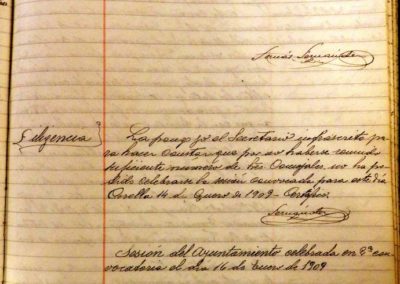 Diligencia
La pongo yo el Secretario infrascrito pa
ra hacer constar que por no haberse reunido
suficiente número de Sres Concejales, no ha po
dido celebrarse la sesión convocada para este día
Corella 14 de Enero de 1909 - Certifico.
Sesión del Ayuntamiento celebrada en 2ª con
vocatoria el día 16 de Enero de 1909